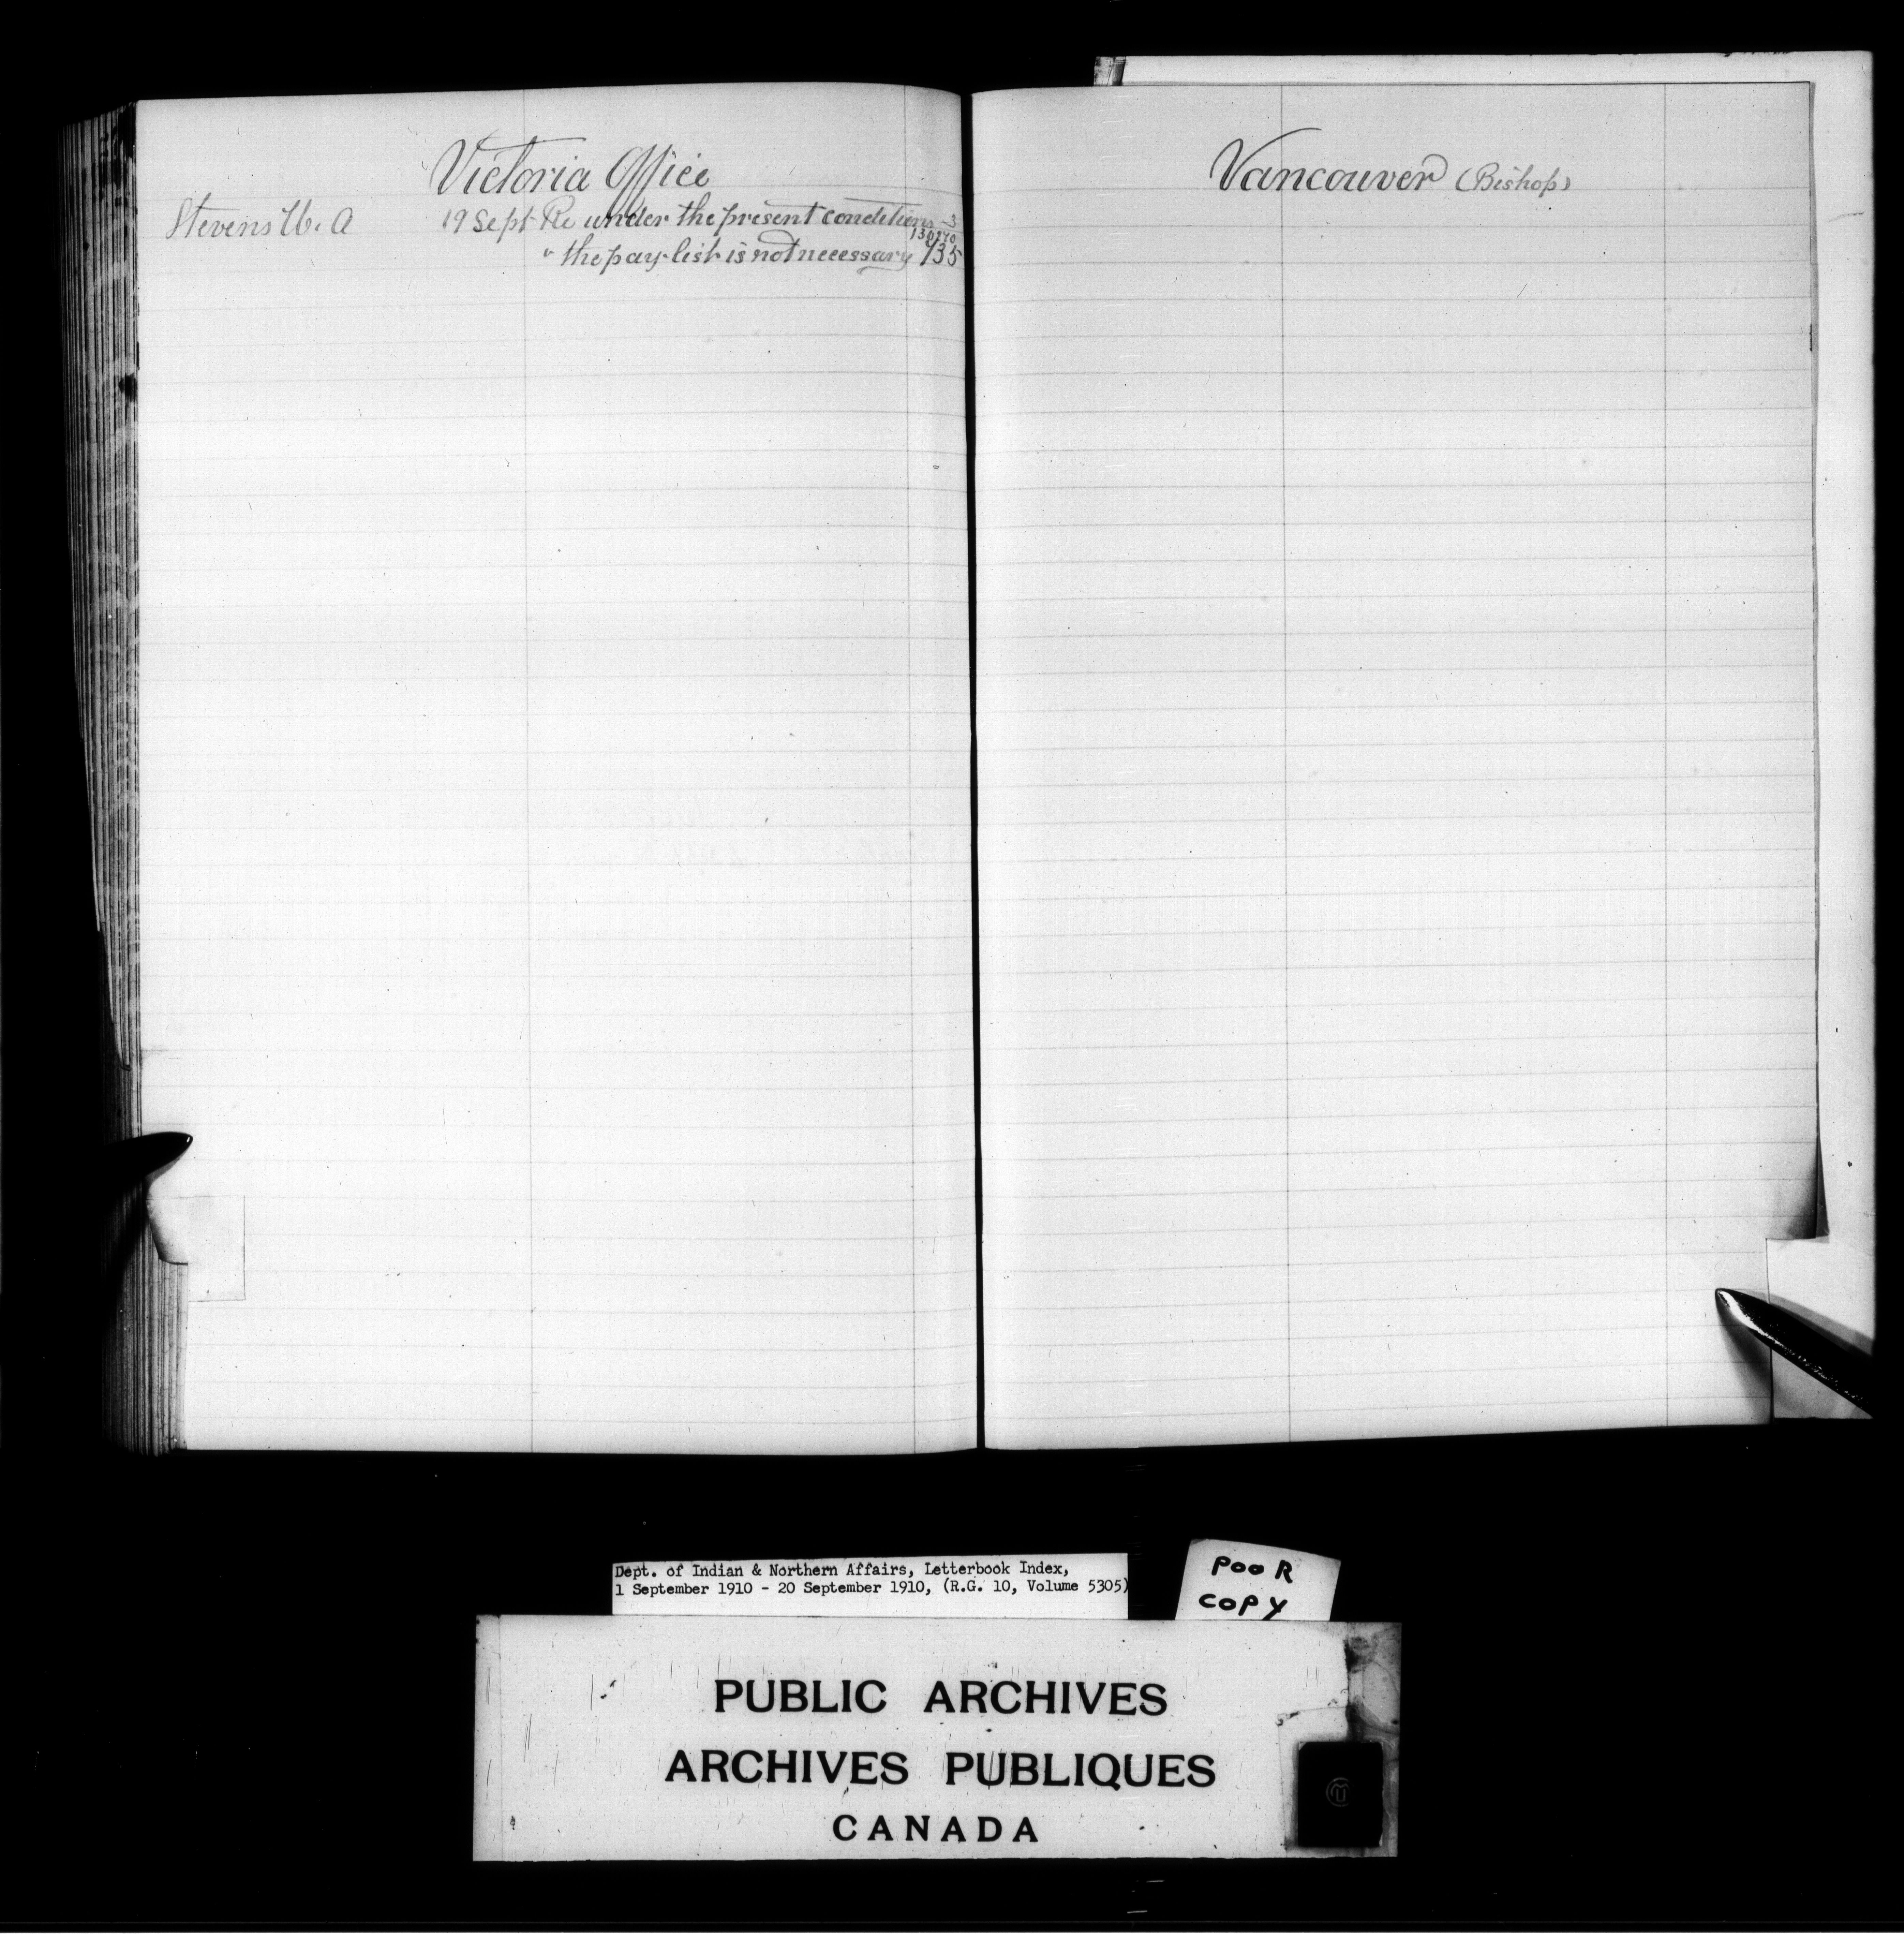 Victoria Office
Stevens W. A 19 Sept Re under the present conditions
" the pay-list is not necessary 735
Vancouver (Bishop)
Dept. of Indian & Northern Affairs, Letterbook Index,
1 September 1910 - 20 September 1910, (R.G. 10, Volume 5305)
POOR
COPY
PUBLIC ARCHIVES
ARCHIVES PUBLIQUES
CANADA